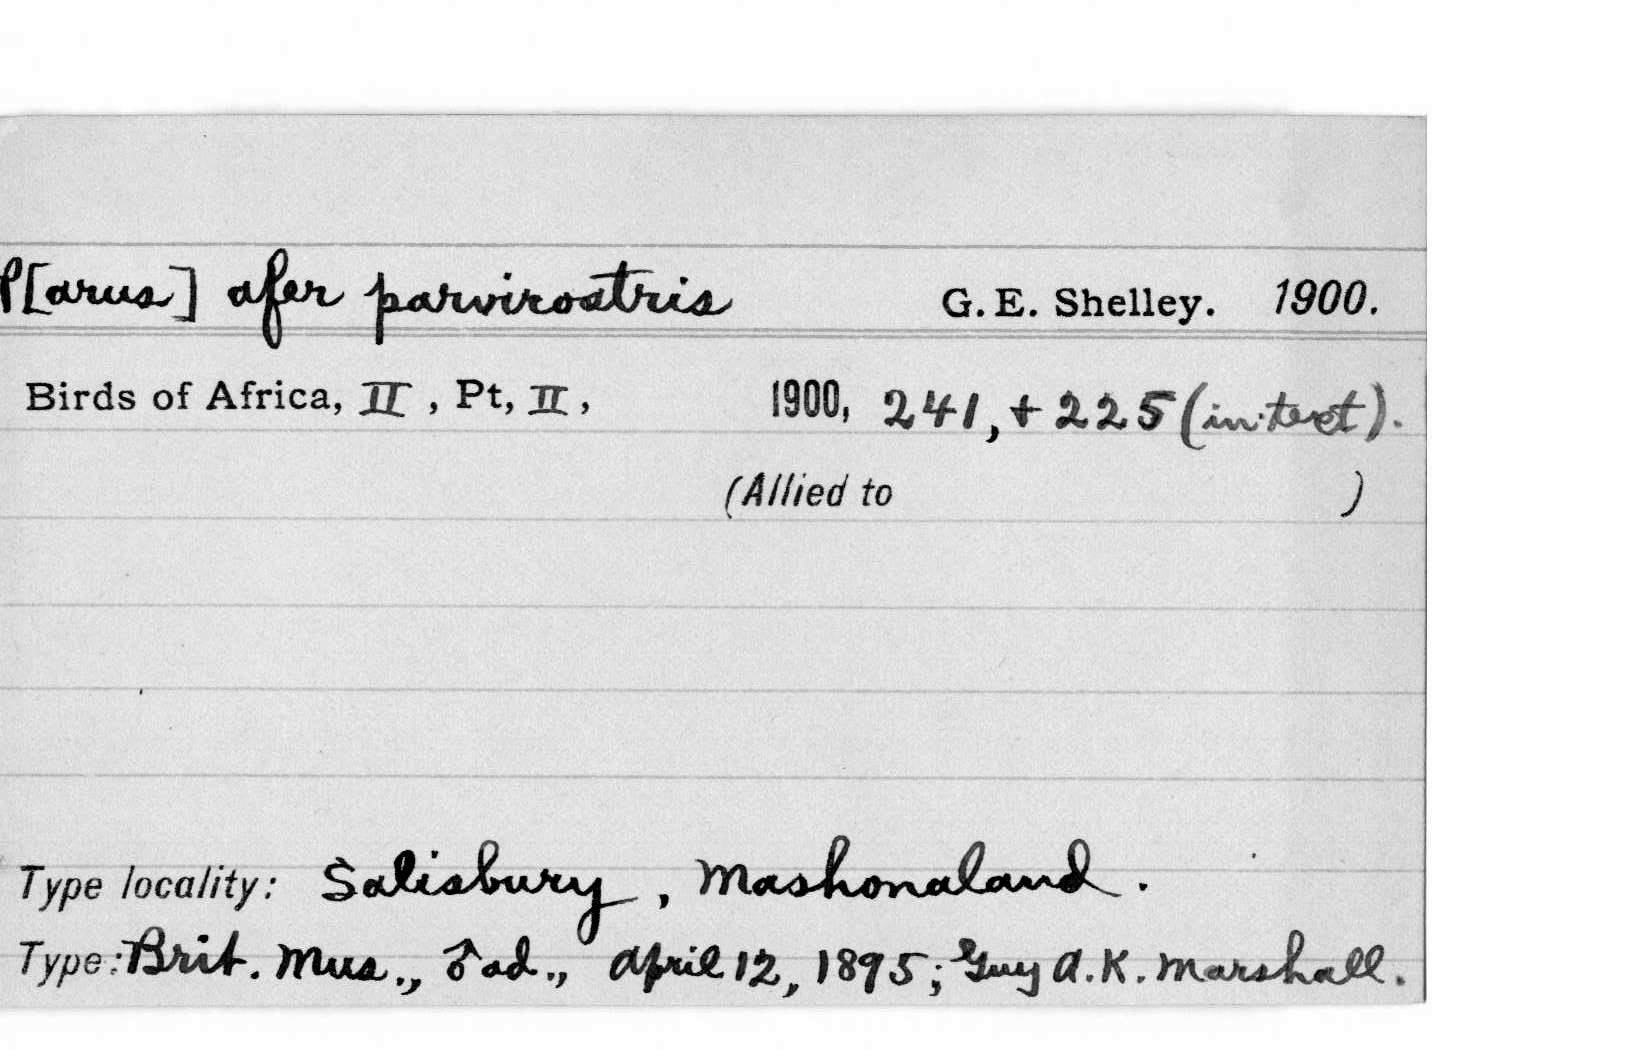 P[arus] afer parvirostris G. E. Shelley. 1900.
Birds of Africa, II, Pt, II, 1900, 241, + 225 (in text).
(Allied to )
Type locality: Salisbury, Mashonaland.
Type: Brit. Mus., ♂ ad., April 12, 1895; Guy A. K. Marshall.